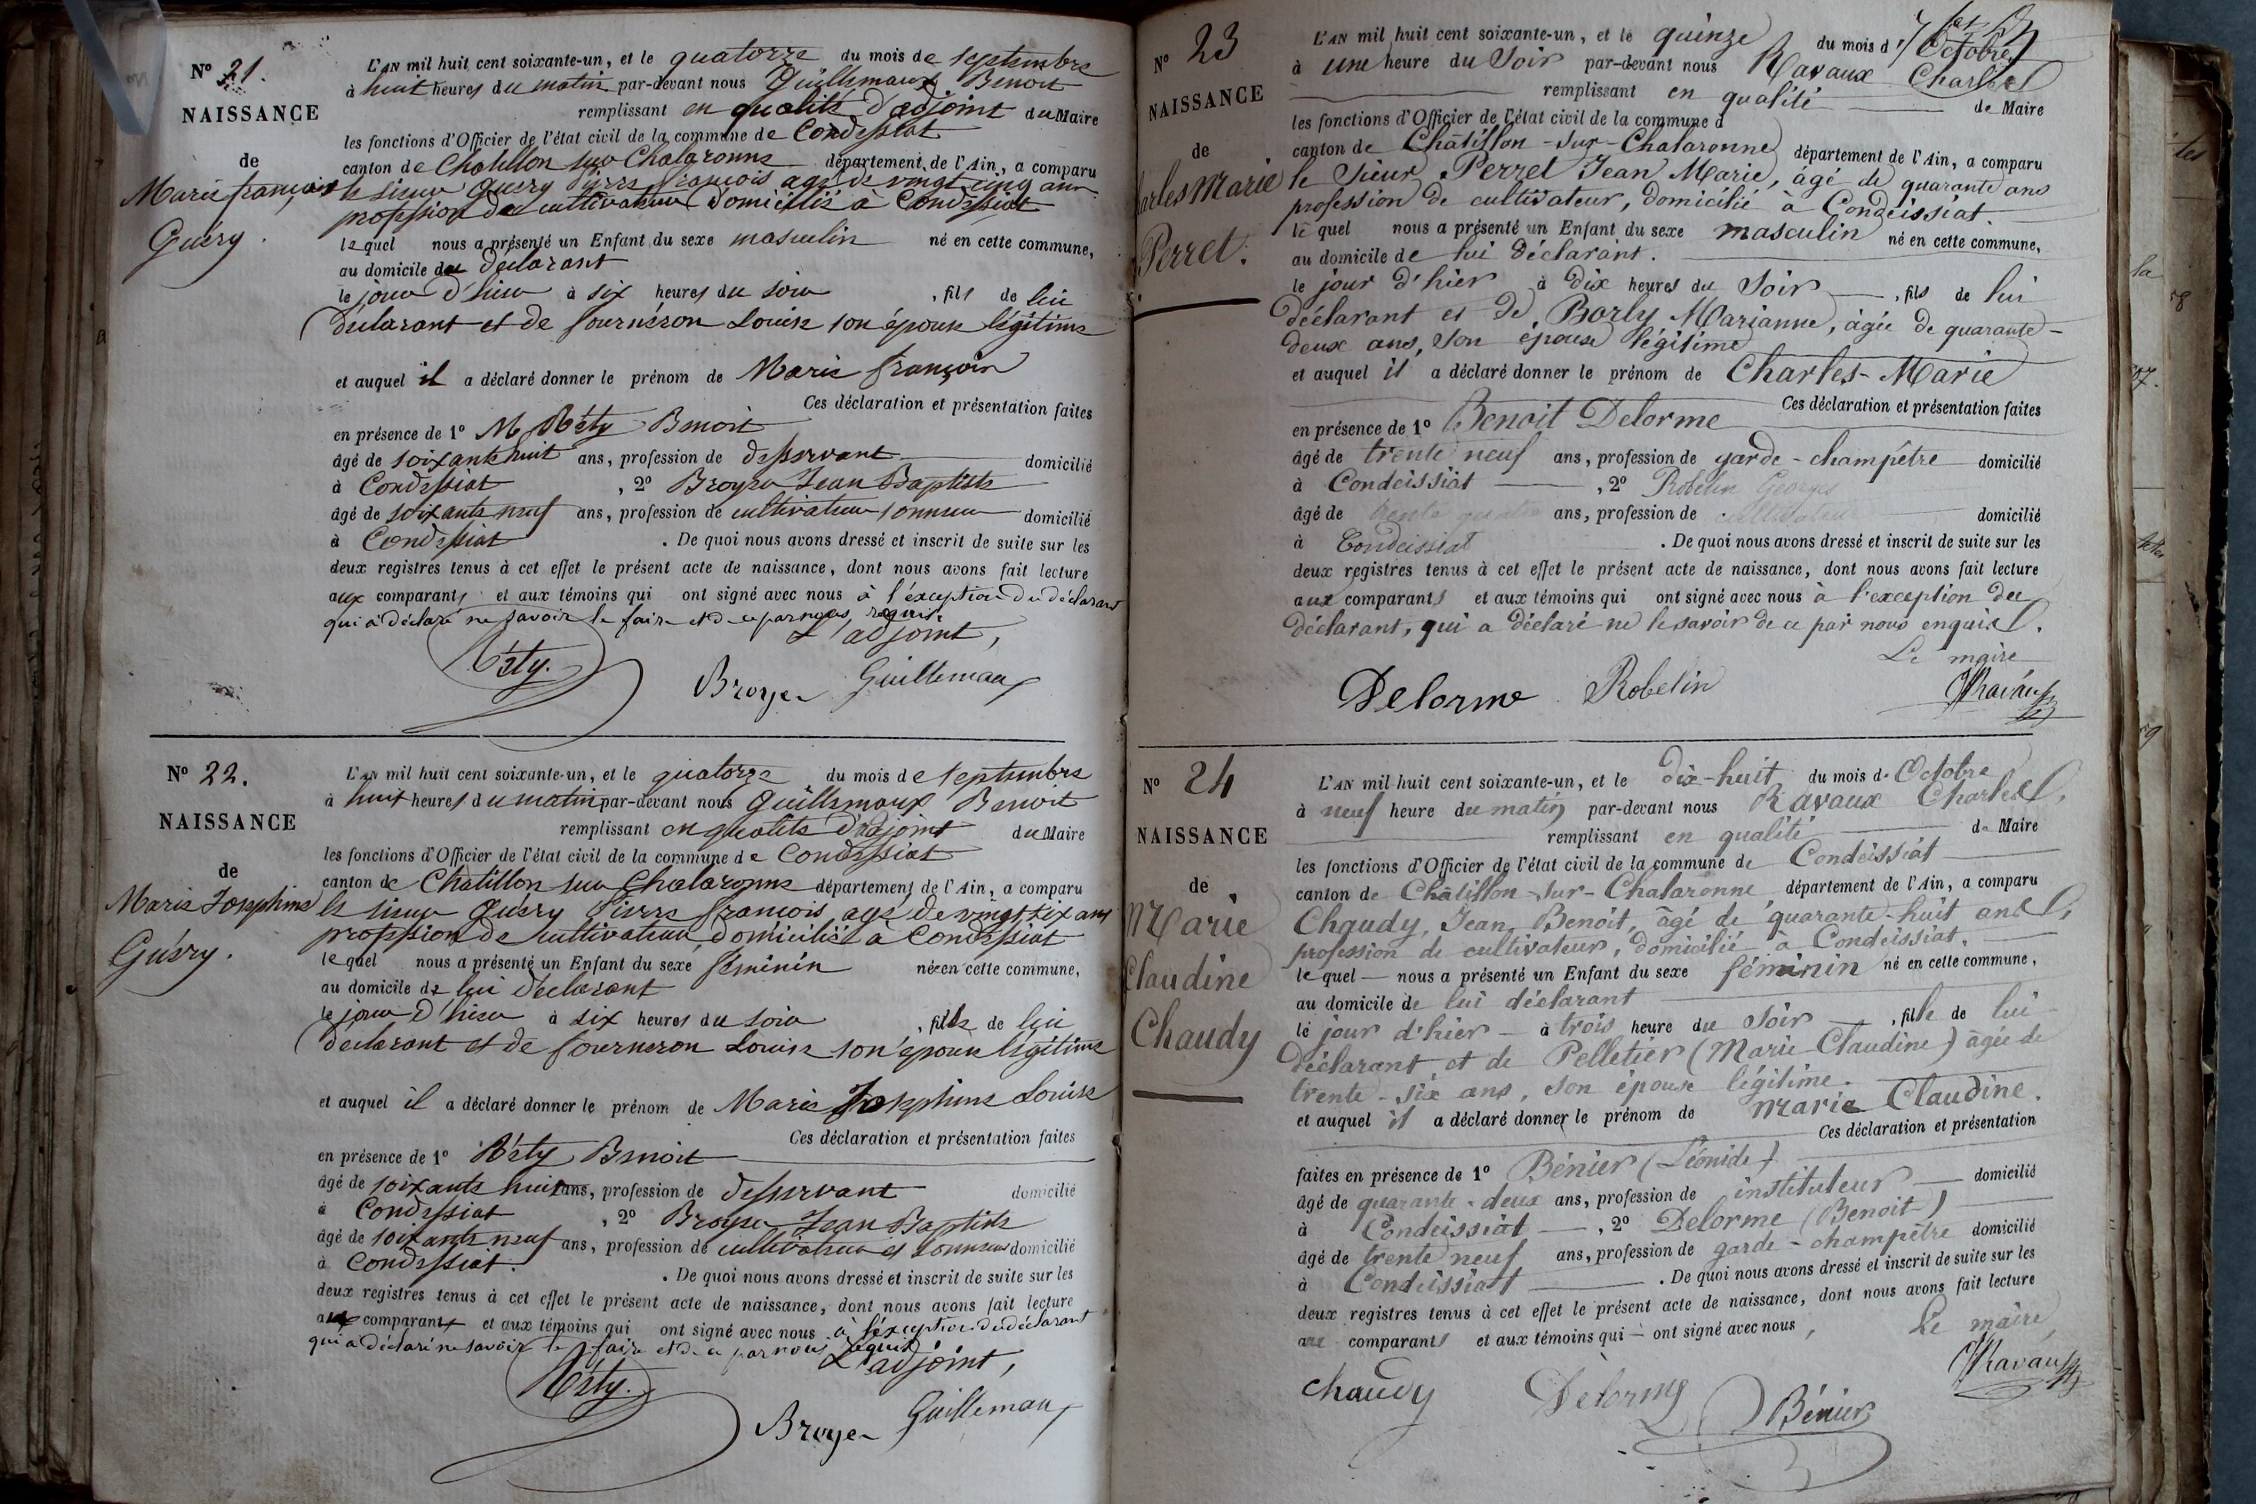 N° 21.
NAISSANCE
de
Marie françois
Guéry.
L'AN mil huit cent soixante-un, et le quatorze du mois de septembre
à huit heures du matin par-devant nous Guillemaux Benoit
remplissant en qualité d'adjoint du Maire
les fonctions d'Officier de l'état civil de la commune de Condessiat
canton de Chatillon sur Chalaronne département de l'Ain, a comparu
le sieur Guery Pierre françois agé de vingt cinq ans
profession de cultivateur domicilié à Condessiat
lequel nous a présenté un Enfant du sexe masculin né en cette commune,
au domicile du déclarant
le jour d'hier à six heures du soir, fils de lui
déclarant et de fourneron Louise son épouse légitime
et auquel il a déclaré donner le prénom de Marie françois
Ces déclaration et présentation faites
en présence de 1° M Réty Benoit
âgé de soixante huit ans, profession de desservant domicilié
à Condessiat, 2° Broyer Jean Baptiste
âgé de soixante neuf ans, profession de cultivateur sonneur domicilié
à Condessiat. De quoi nous avons dressé et inscrit de suite sur les
deux registres tenus à cet effet le présent acte de naissance, dont nous avons fait lecture
aux comparants et aux témoins qui ont signé avec nous à l'éxception du déclarant
qui a déclaré ne savoir le faire et de ce par nous requis.
L'adjoint,
Réty.
Broyer Guillemaux
N° 22.
NAISSANCE
de
Marie Josephine
Guéry.
L'AN mil huit cent soixante-un, et le quatorze du mois de septembre
à huit heures du matin par-devant nous Guillemaux Benoit
remplissant en qualité d'adjoint du Maire
les fonctions d'Officier de l'état civil de la commune de Condessiat
canton de Chatillon sur Chalaronne département de l'Ain, a comparu
le sieur Guéry Pierre françois, agé de vingt six ans
profession de cultivateur domicilié à Condessiat
lequel nous a présenté un Enfant du sexe féminin née en cette commune,
au domicile de lui déclarant
le jour d'hier à six heures du soir, fille de lui
déclarant et de fourneron Louise son épouse légitime
et auquel il a déclaré donner le prénom de Marie Josephine Louise
Ces déclaration et présentation faites
en présence de 1° Réty Benoit
âgé de soixante huit ans, profession de desservant domicilié
à Condessiat, 2° Broyer Jean Baptiste
âgé de soixante neuf ans, profession de cultivateur et sonneur domicilié
à Condessiat. De quoi nous avons dressé et inscrit de suite sur les
deux registres tenus à cet effet le présent acte de naissance, dont nous avons fait lecture
aux comparants et aux témoins qui ont signé avec nous à l'éxception du déclarant
qui a déclaré ne savoir le faire et de ce par nous requis
L'adjoint,
Réty.
Broyer Guillemaux
N° 23
NAISSANCE
de
arles Marie
Perret.
L'AN mil huit cent soixante-un, et le quinze du mois d' Octobre
à une heure du Soir par-devant nous Ravaux Charles
remplissant en qualité de Maire
les fonctions d'Officier de l'état civil de la commune d
canton de Châtillon-sur-Chalaronne département de l'Ain, a comparu
le Sieur Perret Jean Marie, âgé de quarante ans
profession de cultivateur, domicilié à Condeissiat.
lequel nous a présenté un Enfant du sexe masculin né en cette commune,
au domicile de lui déclarant.
le jour d'hier à dix heures du Soir, fils de lui
déclarant et de Borly Marianne, âgée de quarante-
deux ans, son épouse légitime
et auquel il a déclaré donner le prénom de Charles-Marie
Ces déclaration et présentation faites
en présence de 1° Benoit Delorme
âgé de trente neuf ans, profession de garde-champêtre domicilié
à Condeissiat, 2° Robelin Georges
âgé de trente quatre ans, profession de cultivateur domicilié
à Condeissiat. De quoi nous avons dressé et inscrit de suite sur les
deux registres tenus à cet effet le présent acte de naissance, dont nous avons fait lecture
aux comparants et aux témoins qui ont signé avec nous à l'exception du
déclarant, qui a déclaré ne le savoir de ce par nous enquis.
Le maire
Delorme Robelin CRavaux
N° 24
NAISSANCE
de
Marie
Claudine
Chaudy
L'AN mil huit cent soixante-un, et le dix-huit du mois d'Octobre
à neuf heure du matin par-devant nous Ravaux Charles,
remplissant en qualité de Maire
les fonctions d'Officier de l'état civil de la commune de Condeissiat
canton de Châtillon-sur-Chalaronne département de l'Ain, a comparu
Chaudy, Jean Benoit, âgé de quarante-huit ans,
profession de cultivateur, domicilié à Condeissiat.
lequel nous a présenté un Enfant du sexe féminin né en cette commune,
au domicile de lui déclarant
le jour d'hier à trois heure du Soir, fille de lui
déclarant et de Pelletier (Marie Claudine) âgée de
trente-six ans, son épouse légitime.
et auquel il a déclaré donner le prénom de Marie Claudine.
Ces déclaration et présentation
faites en présence de 1° Bénier (Léonide)
âgé de quarante-deux ans, profession de instituteur domicilié
à Condeissiat, 2° Delorme (Benoit)
âgé de trente neuf ans, profession de garde-champêtre domicilié
à Condeissiat. De quoi nous avons dressé et inscrit de suite sur les
deux registres tenus à cet effet le présent acte de naissance, dont nous avons fait lecture
aux comparants et aux témoins qui ont signé avec nous,
Le maire,
CRavaux
Chaudy Delorme Bénier